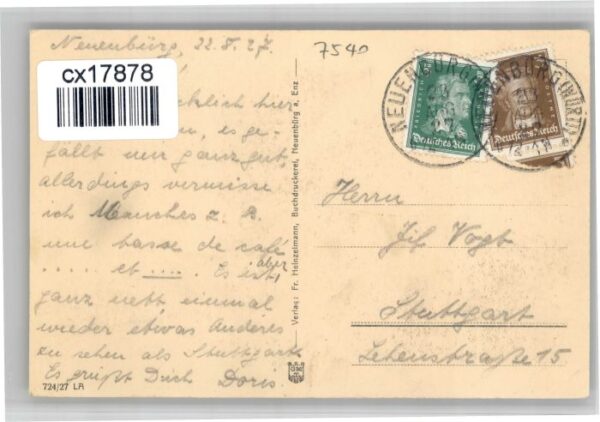 Neuenbürg, 22.8.27.
7540
cx17878
cklich hier
en, es ge-
fällt mir ganz gut
allerdings vermisse
ich Manches z. B.
une tasse de café
..... et ..... Es ist aber
ganz nett einmal
wieder etwas Anderes
zu sehen als Stuttgart
Es grüßt Dich Doris
724/27 LA
Verlag: Fr. Heinzelmann, Buchdruckerei, Neuenbürg a. Enz
NEUENBÜRG
Deutsches Reich
NEUENBÜRG (WÜRTT)
Deutsches Reich
Herrn
Vogt
Stuttgart
Lehenstraße 15